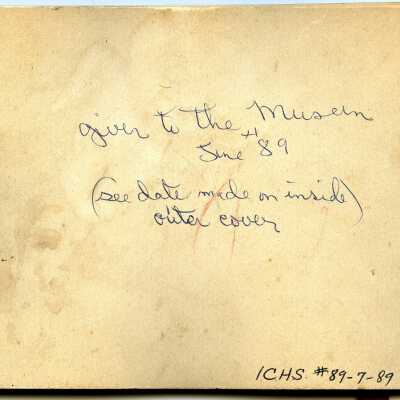 given to the Museum
June '89
(see date made on inside)
outer cover
ICHS #89-7-89